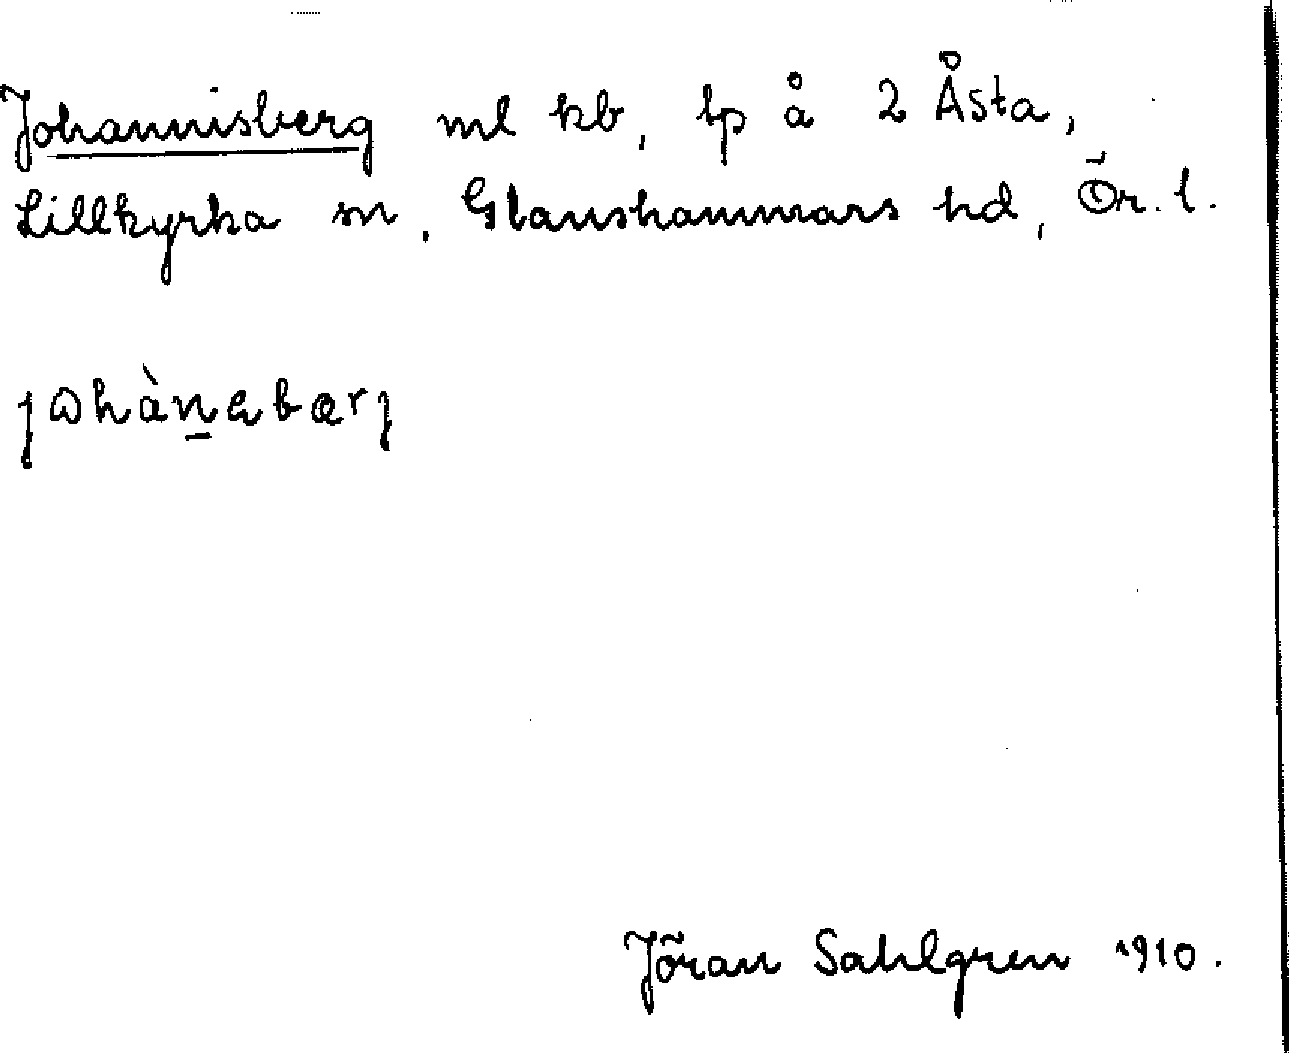 Johannisberg ml kb, lp å 2 Åsta,
Lillkyrka sn, Glanshammars hd, Ör. l.
jɷhàn̲əbærj
Jöran Sahlgren 1910.